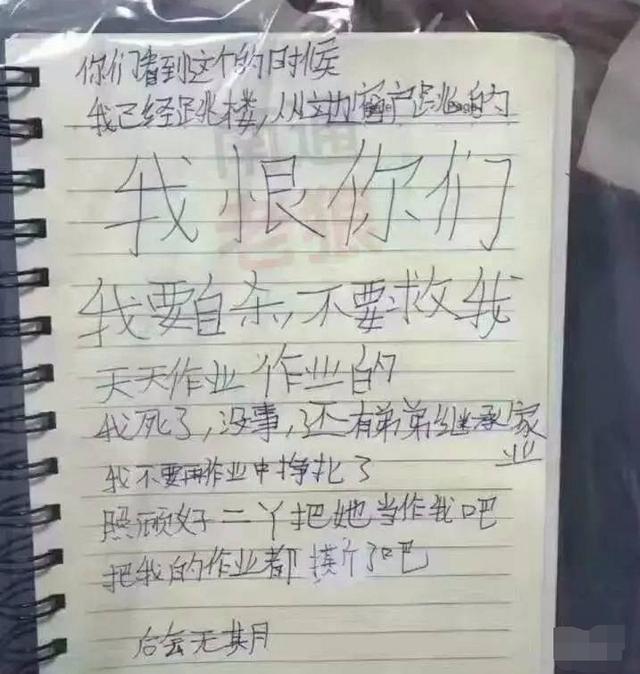 你们看到这个的时候
我已经跳楼,从这个窗户跳的
我恨你们
我要自杀,不要救我
天天作业作业的
我死了,没事,还有弟弟继承家业
我不要再作业中挣扎了
照顾好二丫把她当作我吧
把我的作业都撕了吧
后会无期